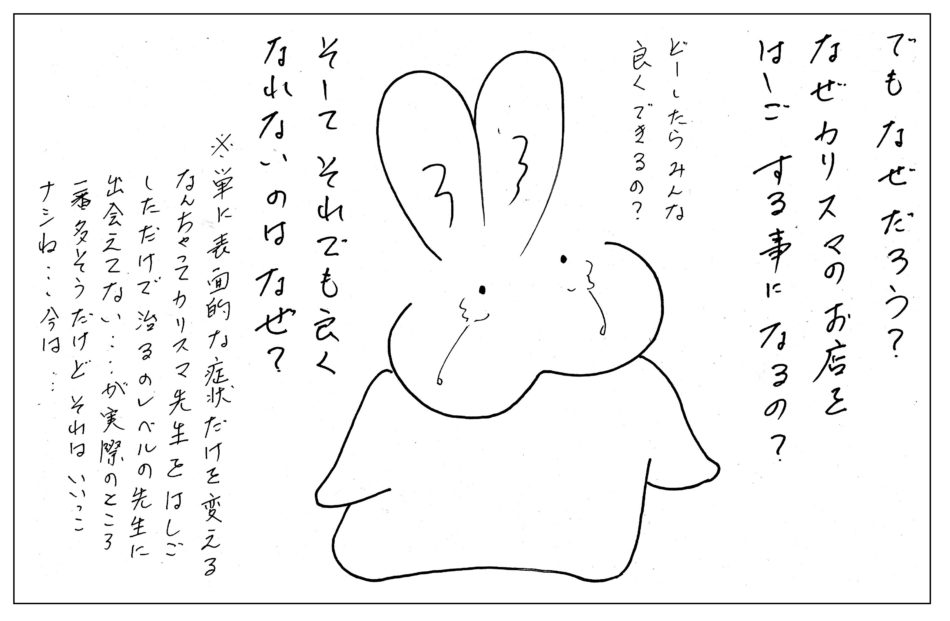 でもなぜだろう？
なぜカリスマのお店を
はしご する事に なるの？
どーしたらみんな
良くできるの？
そして それでも良く
なれないのは なぜ？
※単に表面的な症状だけを変える
なんちゃってカリスマ先生をはしご
しただけで治るのレベルの先生に
出会えてない…が実際のところ
一番多そうだけど それは いいっこ
ナシね…今は…